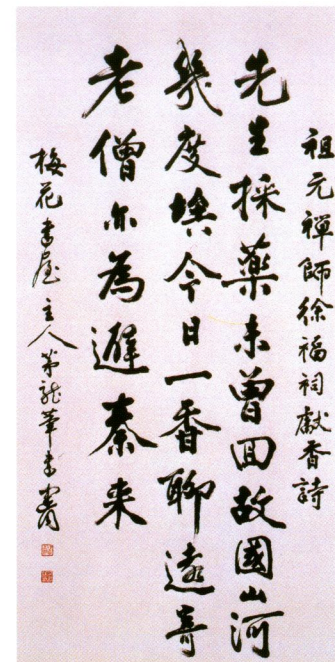 祖元禪師徐福祠獻香詩
先生採藥未曾回故國山河
幾度埃今日一香聊遠寄
老僧亦為避秦来
梅花書屋主人茅龍筆書